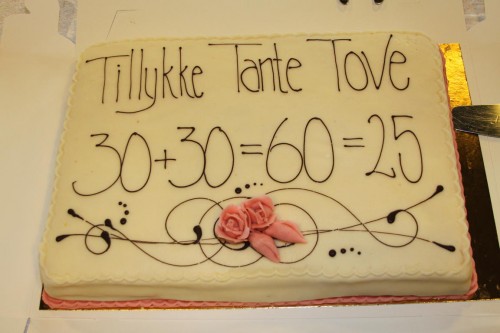 Tillykke Tante Tove
30+30=60=25